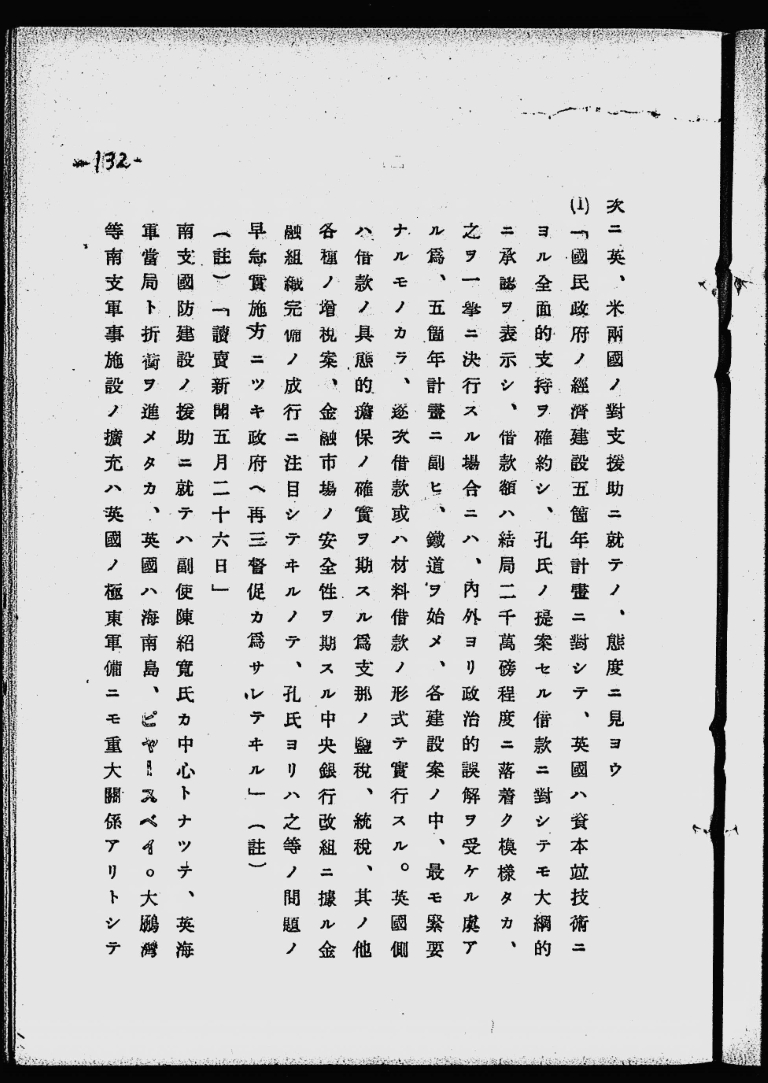 -132-
次ニ英、米兩國ノ對支援助ニ就テノ、態度ニ見ヨウ
(1)「國民政府ノ經濟建設五箇年計畫ニ對シテ、英國ハ資本竝技術ニ
ヨル全面的支持ヲ確約シ、孔氏ノ提案セル借款ニ對シテモ大綱的
ニ承認ヲ表示シ、借款額ハ結局二千萬磅程度ニ落着ク模樣タカ、
之ヲ一擧ニ決行スル場合ニハ、內外ヨリ政治的誤解ヲ受ケル虞ア
ル爲、五箇年計畫ニ副ヒ、鐵道ヲ始メ、各建設案ノ中、最モ緊要
ナルモノカラ、逐次借款或ハ材料借款ノ形式テ實行スル。英國側
ハ借款ノ具態的擔保ノ確實ヲ期スル爲支那ノ鹽稅、統稅、其ノ他
各種ノ增稅案、金融市場ノ安全性ヲ期スル中央銀行改組ニ據ル金
融組織完備ノ成行ニ注目シテヰルノテ、孔氏ヨリハ之等ノ問題ノ
早急實施方ニツキ政府ヘ再三督促カ爲サレテヰル」(註)
(註)「讀賣新聞五月二十六日」
南支國防建設ノ援助ニ就テハ副使陳紹寬氏カ中心トナツテ、英海
軍當局ト折衝ヲ進メタカ、英國ハ海南島、ピヤースベイ。大鵬灣
等南支軍事施設ノ擴充ハ英國ノ極東軍備ニモ重大關係アリトシテ